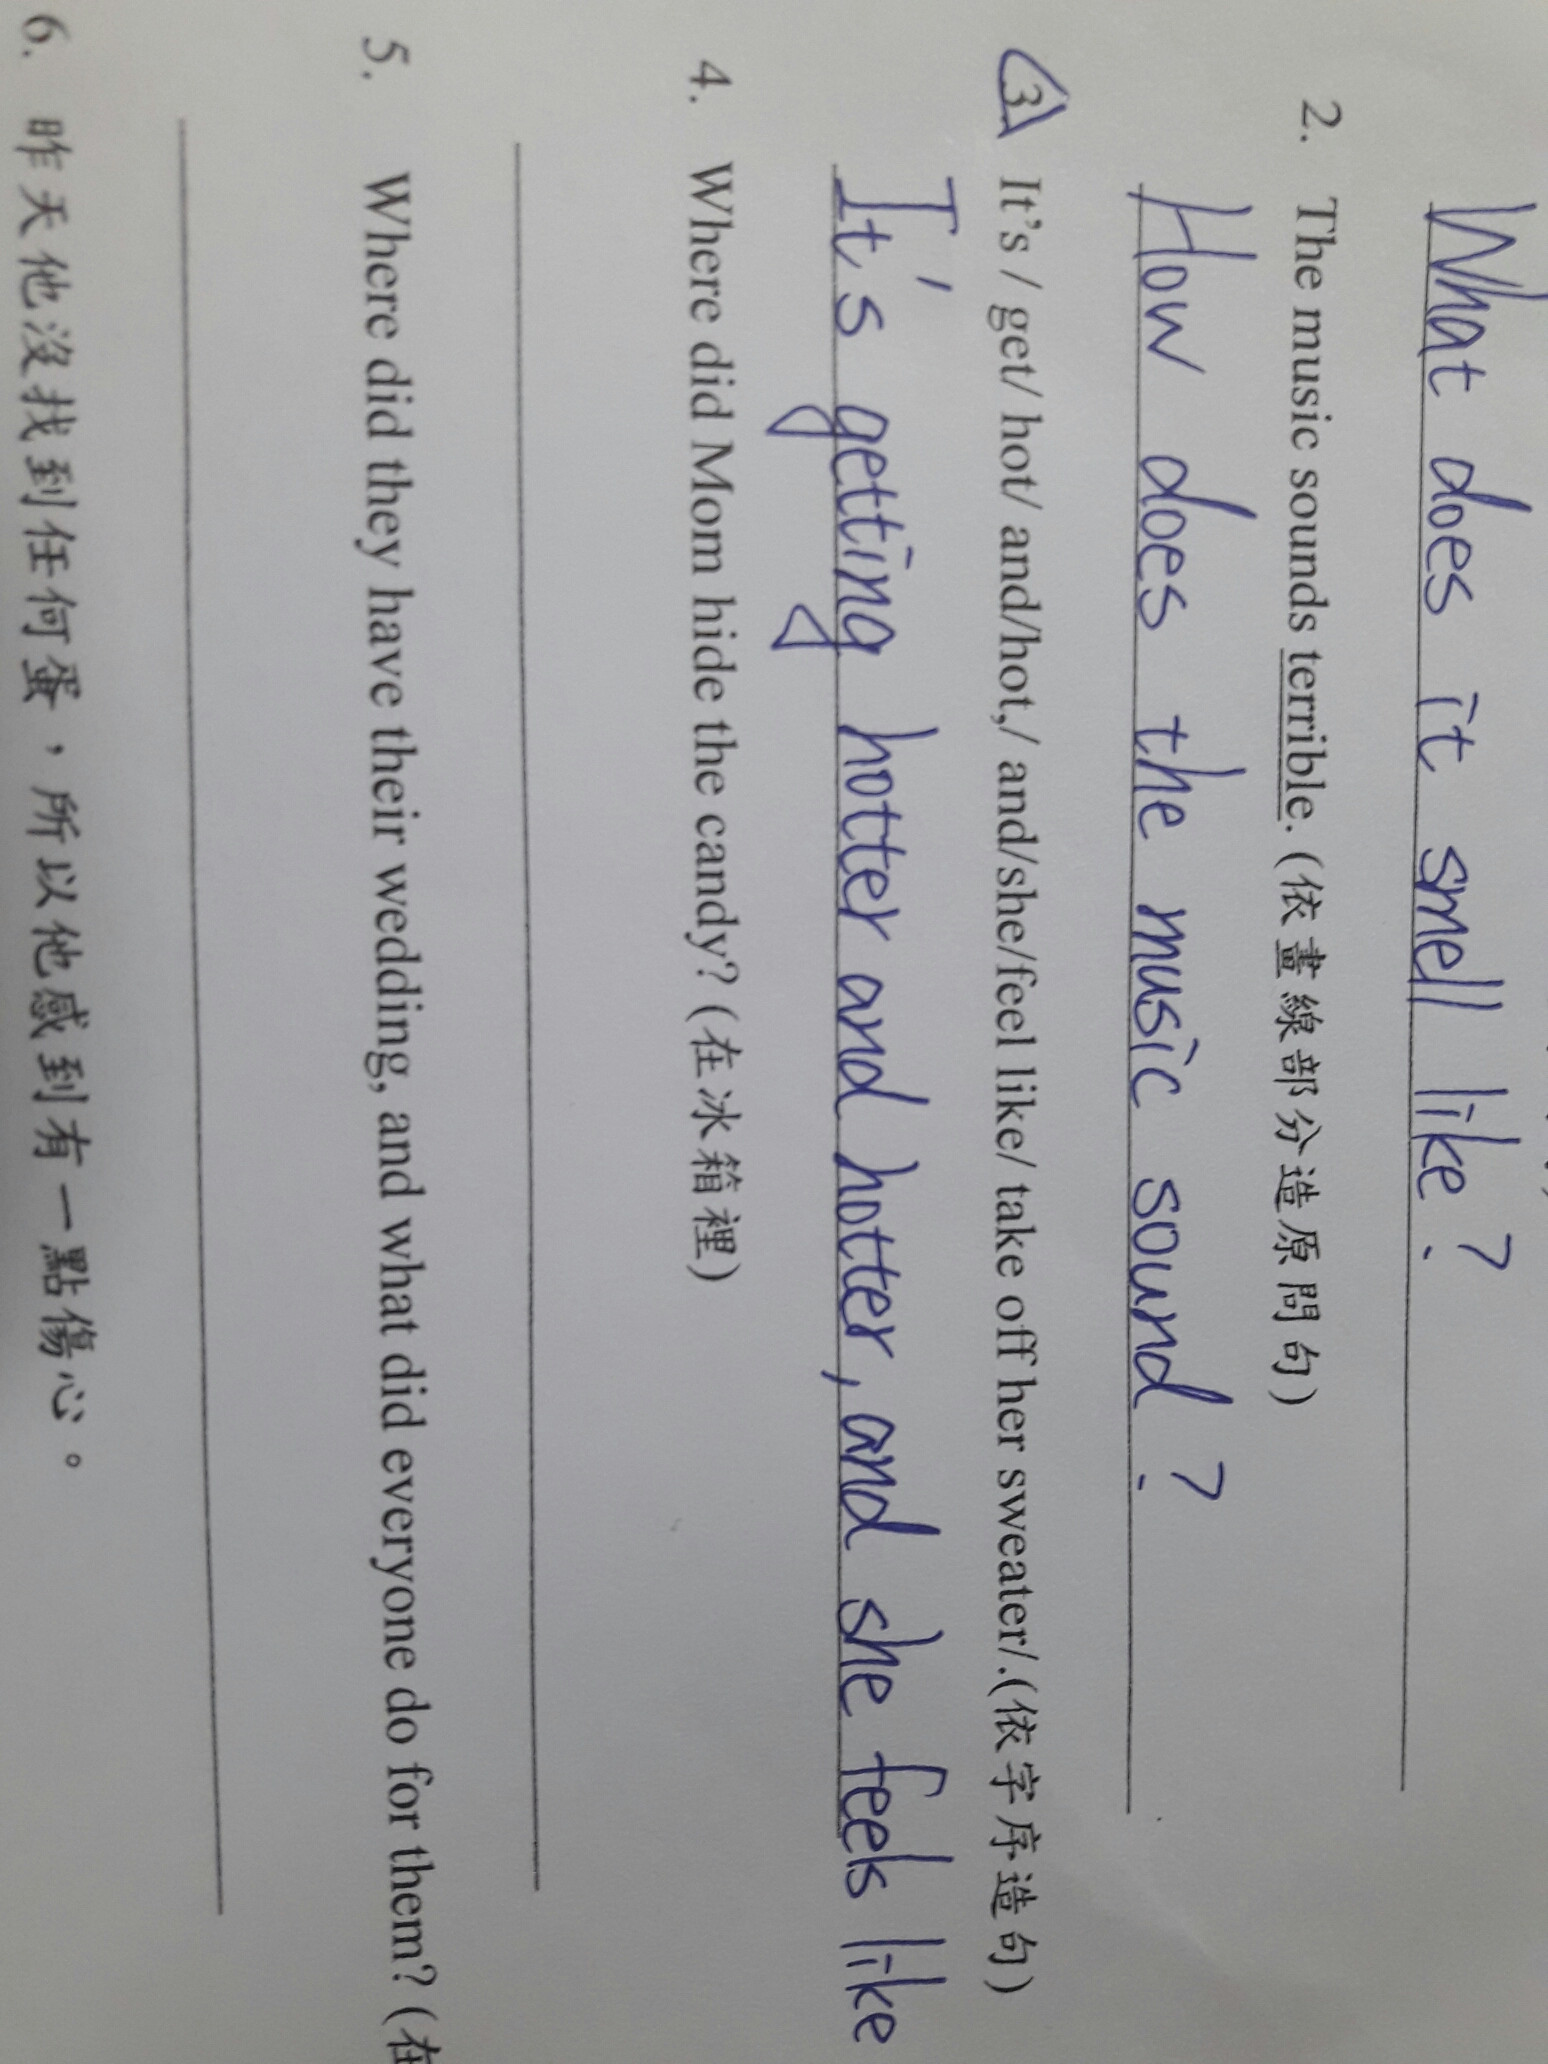 What does it smell like?
2. The music sounds terrible. (依畫線部分造原問句)
How does the music sound?
3. It's / get/ hot/ and/hot,/ and/she/feel like/ take off her sweater/.(依字序造句)
It's getting hotter and hotter, and she feels like
4. Where did Mom hide the candy? (在冰箱裡)
5. Where did they have their wedding, and what did everyone do for them? (在
6. 昨天他沒找到任何蛋，所以他感到有一點傷心。